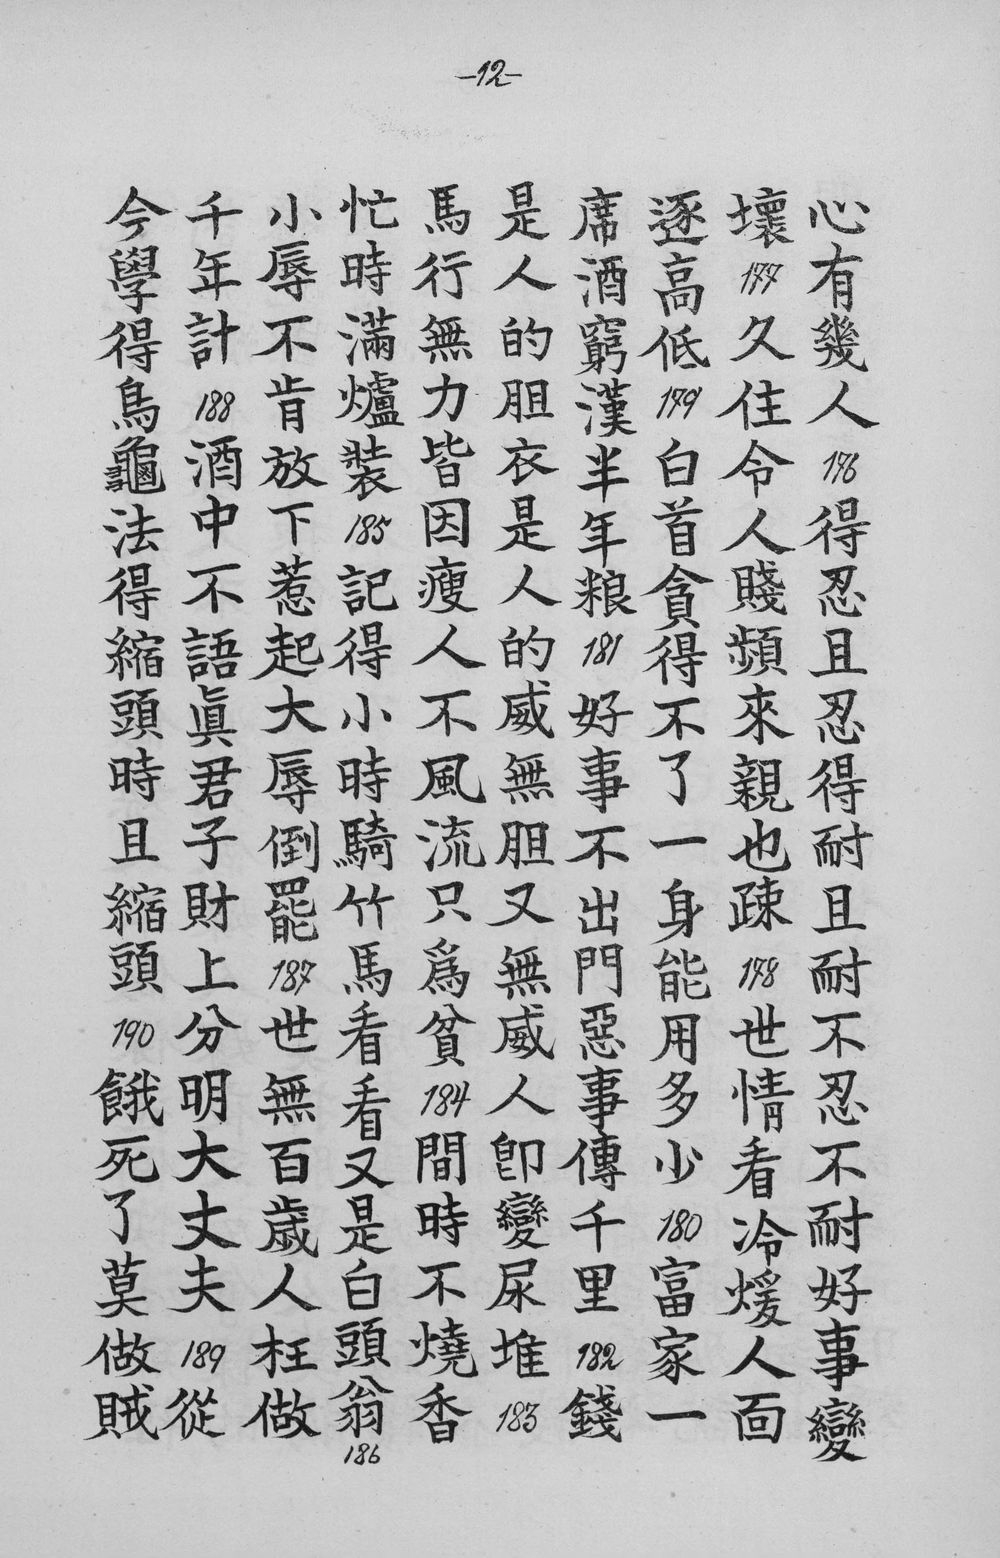 -12-
心有幾人176得忍且忍得耐且耐不忍不耐好事變
壞177久住令人賤頻來親也疎178世情看冷煖人面
逐高低179白首貪得不了一身能用多少180富家一
席酒窮漢半年粮181好事不出門惡事傳千里182錢
是人的胆衣是人的威無胆又無威人卽變尿堆183
馬行無力皆因瘦人不風流只爲貧184間時不燒香
忙時滿爐裝185記得小時騎竹馬看看又是白頭翁186
小辱不肯放下惹起大辱倒罷187世無百歲人枉做
千年計188酒中不語眞君子財上分明大丈夫189從
今學得烏龜法得縮頭時且縮頭190餓死了莫做賊